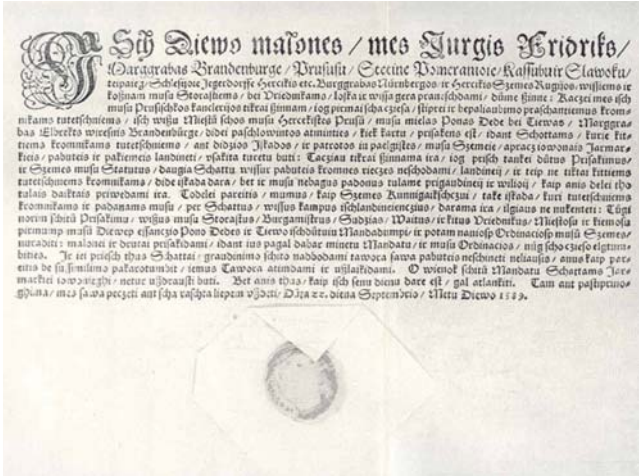 Isch Diewo malones / mes Jurgis Fridriks /
Marggrabas Brandenburge / Prususu / Stetine Pomeranioie / Kassubu ir Slawoku
teipaieg / Schlesijoie / Jegerdorffe Hercikis etc. Burggrabas Nurnbergos ir Hercikis Szemes Rugijos / wissiems ir
koßnam musu Storastems / bei Vriednikams / loska ir wissa gera pran schodami / dūme ßinne / Raczei mes isch
musu Prusischkos kanclerijos tikrai ßinnam / iog pirmai scha czesa / stiprei ir bepaliaubimo praschantiemus krom-
nikams tutetschniems / isch wißu Miestū schos musu Hercekistes Prusū / musu mielas Ponas Dede bei Tiewas / Marggra-
bas Elbrekts wiresnis Brandenburge / didei paschlowintos atminties / kiek kartu / prisakens est / idant Schottams / kurie kit-
tiems kromnikams tutetschniems / ant didzios Iskados / ir patrotos in paelgistes / musu Szemeie / apracz iowonais Jarmar-
kieis / pabuteis ir pakiemeis landineti / vsakita turetu buti: Tacziau tikrai ßinnama ira / iog prisch tankei dūtus Prisakimus /
ir Szemes musu Statutus / daugia Schattu wissur pabuteis kromnes rieczes neschodami / landineij / ir teip ne tiktai kittiems
tutetschniems kromnikams / dide iskada dara / bet ir musu nebagus padonus tulame prigaudineij ir wilioij / kaip anis delei tho
tulais daiktais priwedami ira. Todelei pareitis / mumus / kaip Szemes Kunnigaikschczui / take iskada / kuri tutetschniems
kromnikams ir padanams musu / per Schattus / wissus kampus ischlandinienczius / darama ira / ilgiaus ne nukenter: Tūgi
norim schitū Prisakimu / wißus musu Storastus / Burgamistrus / Sudzias / Waitus / ir kitus Vriednikus / Miestosu ir kiemosu
pirmump musū Diewep essanczio Pono Dedes ir Tiewo ischdūtuiu Mandadumpi / ir potam naniosp Ordinaciosp musū Szemes /
nuraditi: malonei ir drutai prisakidami / idant ius pagal dabar minetu Mandatu / ir musu Ordinacios / nūg schoczieso elgtum-
bities. Je iei priesch thas Schattai / graudinimo schito nadbodami tawora sawa pabuteis neschineti neliausis / anus kaip par-
eitis be susimilimo pakarotumbit / iemus Tawora atimdami ir vßlaikidami. O wienok schitū Mandatu Schattams Jar-
markei iowonieghi / netur vßdrausti buti. Bet anis thas / kaip isch senu dienu dare est / gal atlankiti. Tam ant pastiprino-
ghima / mes sawa peczeti ant scha raschta liepem vßdeti / Dūta 22. diena Septembrio / Metu Diewo 1589.